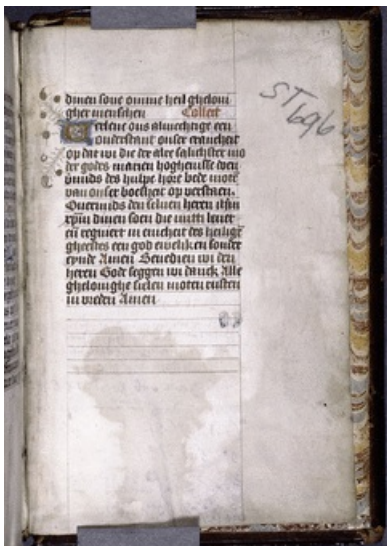 dinen sone omme heil ghelovi
gher menschen Collect
erlene ons almechtige een
onderstant onser crancheit
op dat wi die der alre salichster mo
der godes marien hoghenisse
mids des hulpe hore bede mote
van onser bosheit op verstaen.
Overmids den selven heren ihsm
xpm dinen soen die mitti levet
en regniert in eenicheit des heilige
gheestes een god ewelik en sonder
eynde Amen Benedien wi den
heren Gode seggen wi danck Alle
ghelovighe sielen moten rusten
in vreden Amen
ST
696